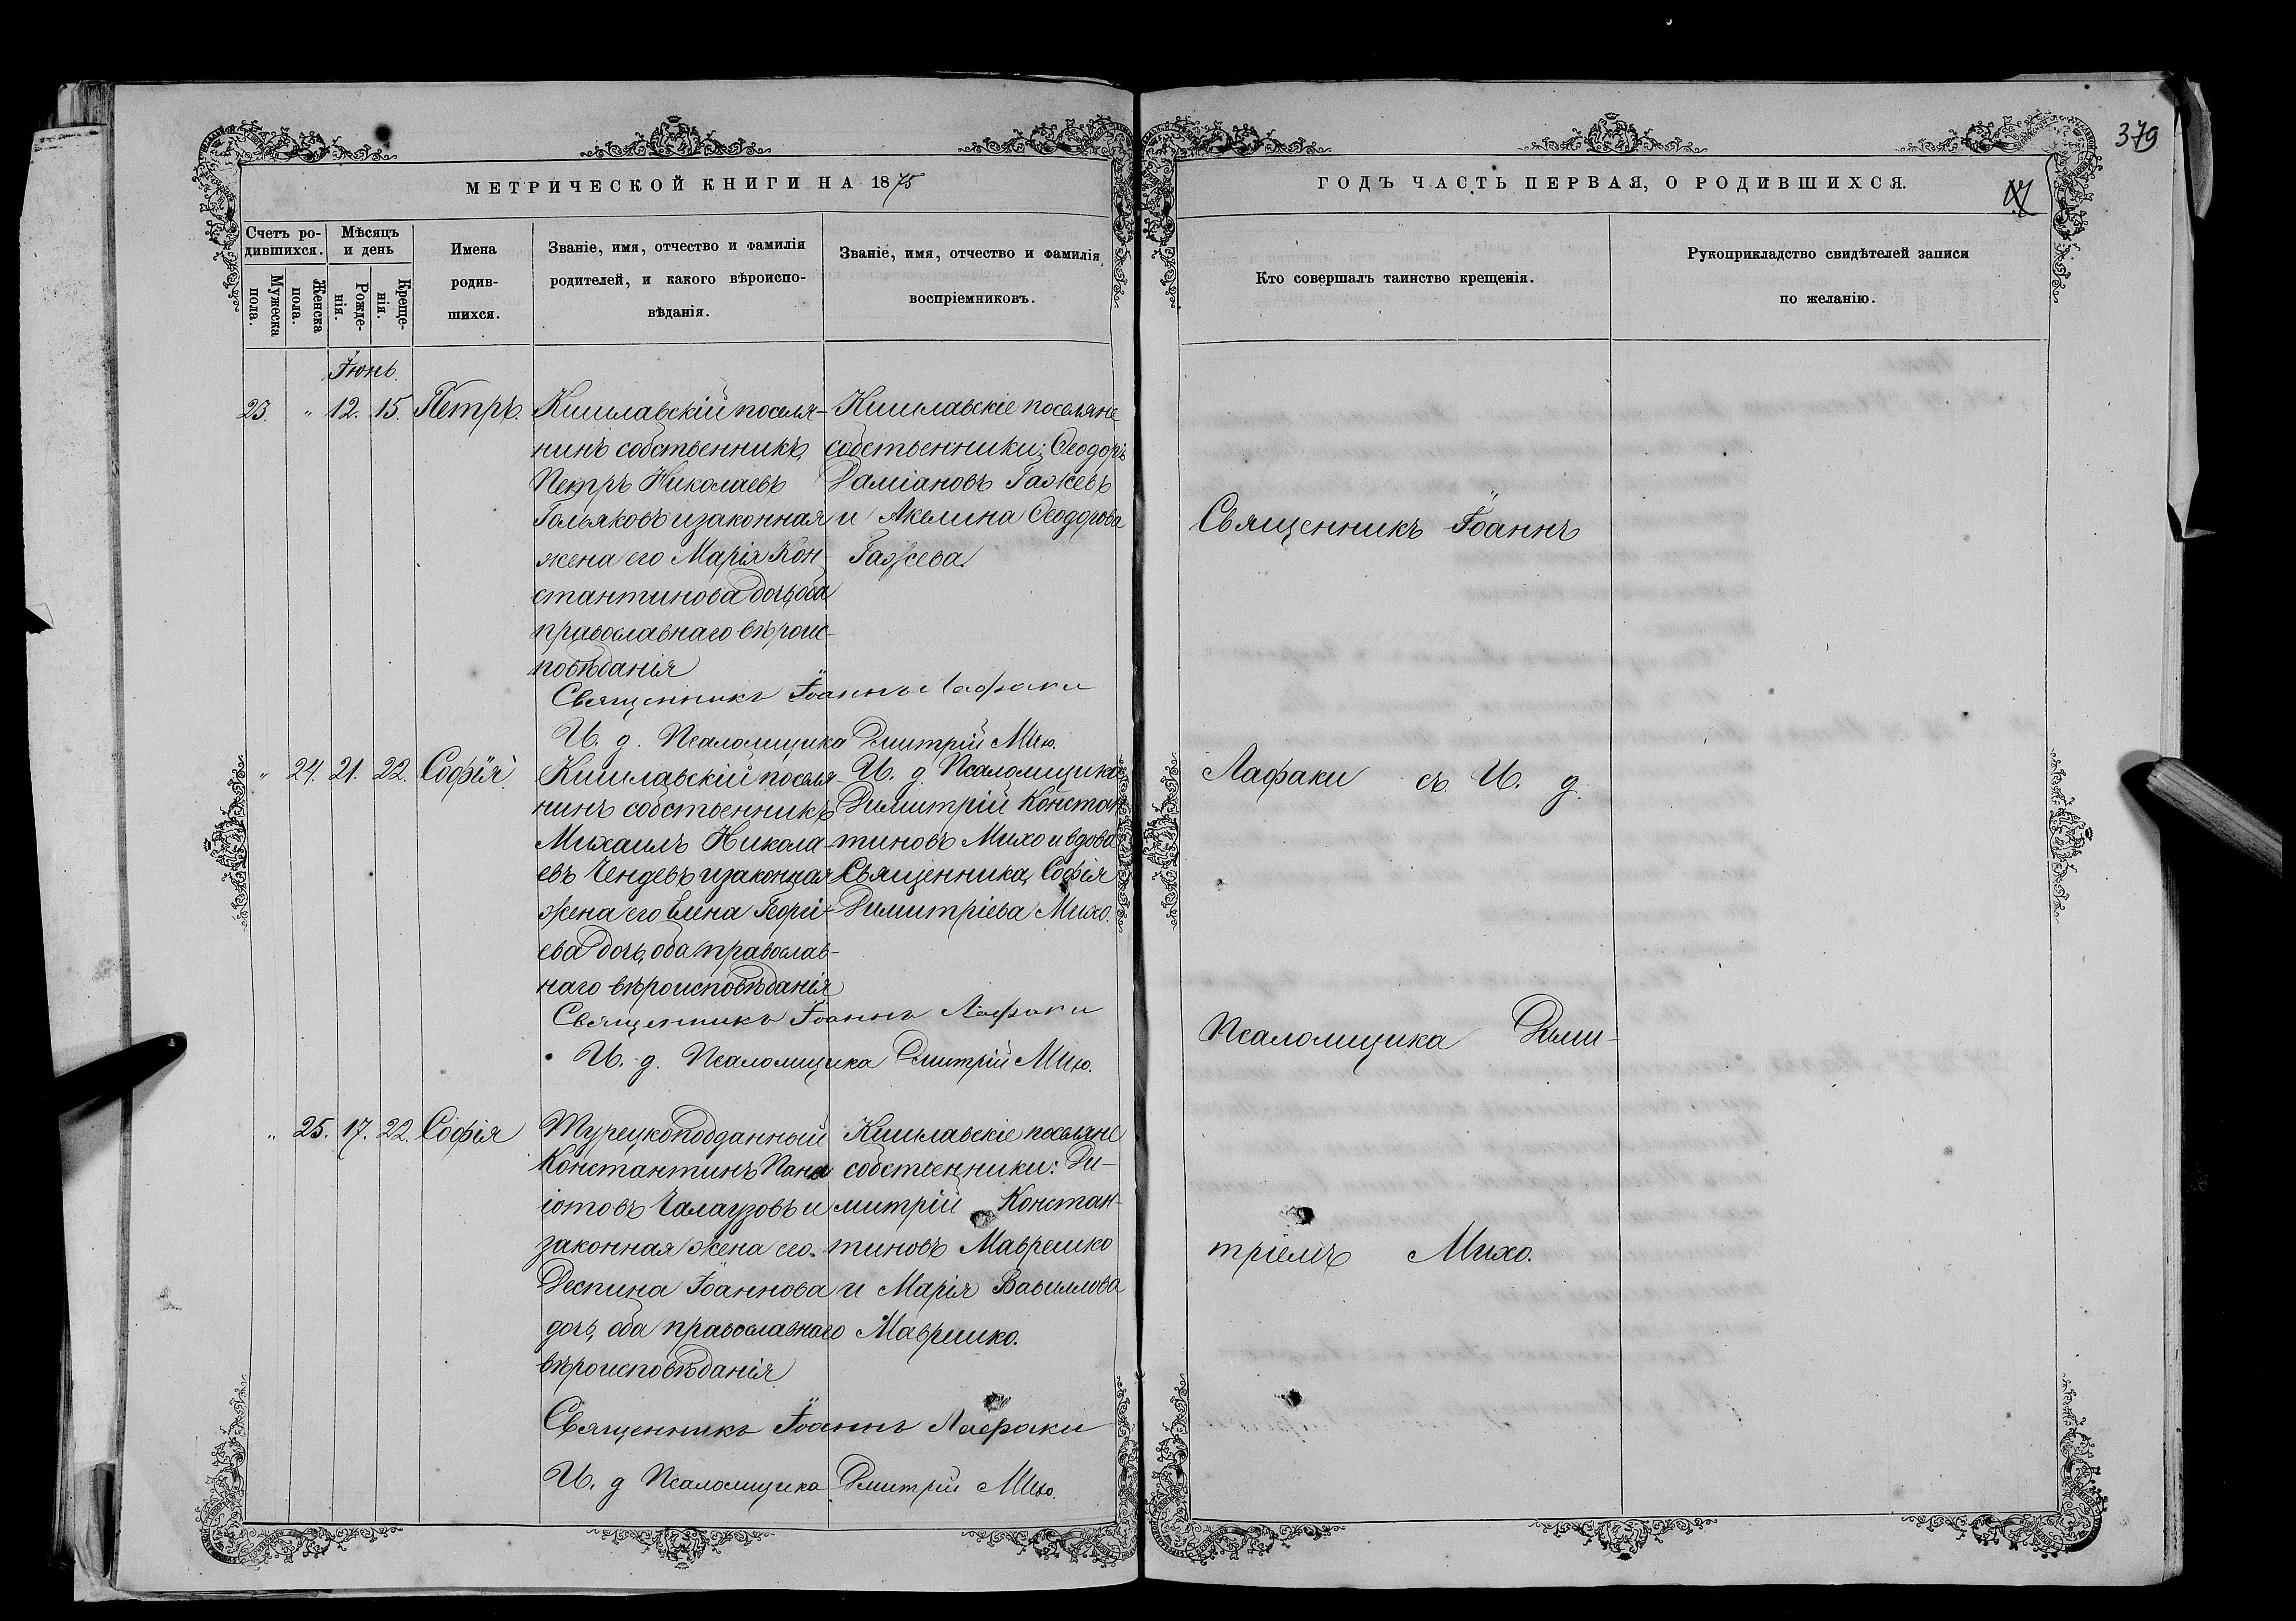 379
МЕТРИЧЕСКОЙ КНИГИ НА 1875
ГОДЪ ЧАСТЬ ПЕРВАЯ, О РОДИВШИХСЯ.
Счетъ ро-
дившихся.
Мужеска
пола.
Женска
пола.
Мѣсяцъ
и день
Рожде-
нія.
Креще-
нія.
Имена
родив-
шихся.
Званіе, имя, отчество и фамилія
родителей, и какого вѣроиспо-
вѣданія.
Званіе, имя, отчество и фамилія
воспріемниковъ.
Кто совершалъ таинство крещенія.
Рукоприкладство свидѣтелей записи
по желанію.
Іюнь
23. " 12. 15. Петръ.
Кишлавскій поселя-
нинъ собственникъ,
Петръ Николаевъ
Гальяковъ и законная
жена его Марія Кон-
стантинова дочь, оба
православнаго вѣроис-
повѣданія
Кишлавскіе поселяне
собственники: Ѳеодоръ
Даміановъ Гажевъ
и Акелина Ѳеодорова
Гажева.
Священникъ Іоаннъ Лафаки
И. д. Псаломщика Дмитрій Михо.
" 24. 21. 22. Софія.
Кишлавскій поселя-
нинъ собственникъ
Михаилъ Никола-
евъ Чендевъ и законная
жена его Елена Георгі-
ева дочь, оба православ-
наго вѣроисповѣданія
И. д. Псаломщика
Димитрій Констан
тиновъ Михо и вдова
Священника, Софія
Димитріева Михо.
Священникъ Іоаннъ Лафаки
И. д. Псаломщика Дмитрій Михо.
" 25. 17. 22. Софія
Турецкоподданный
Константинъ Пана
іотовъ Чалагузовъ и
законная жена его
Деспина Іоаннова
дочь, оба православнаго
вѣроисповѣданія
Кишлавскіе поселяне
собственники: Ди-
митрій Констан-
тиновъ Маврешко
и Марія Вавилова
Маврешко.
Священникъ Іоаннъ Лафаки
И. д Псаломщика Дмитрій Михо.
Священникъ Іоаннъ
Лафаки съ И. д.
Псаломщика Дими-
тріемъ Михо.